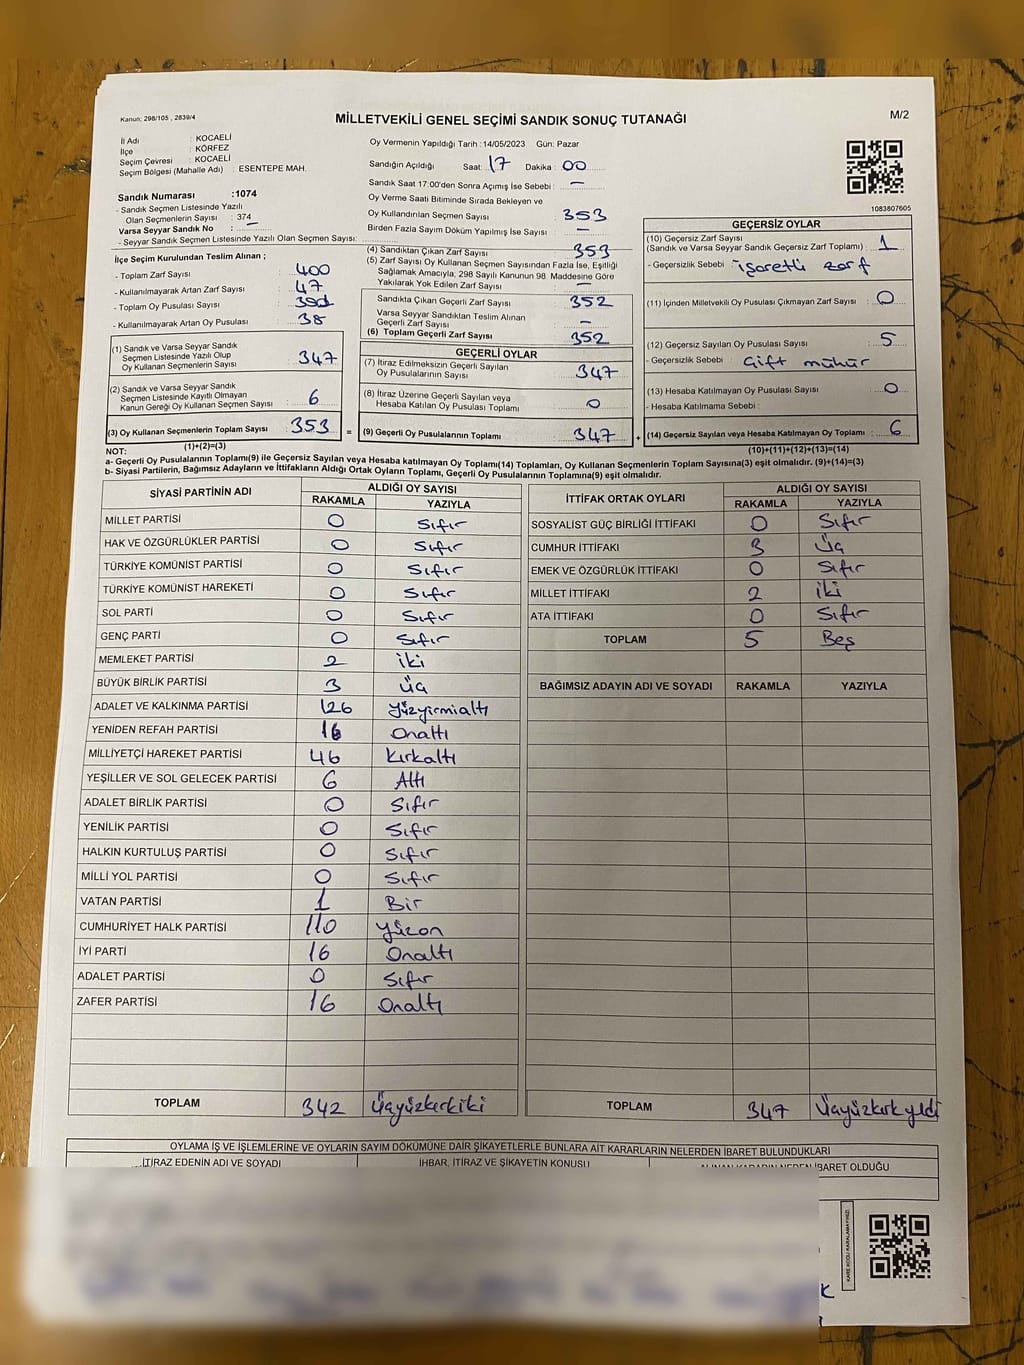 Kanun; 298/105 , 2839/4
MİLLETVEKİLİ GENEL SEÇİMİ SANDIK SONUÇ TUTANAĞI
M/2
İl Adı : KOCAELİ
İlçe : KÖRFEZ
Seçim Çevresi : KOCAELİ
Seçim Bölgesi (Mahalle Adı) : ESENTEPE MAH.
Sandık Numarası :1074
- Sandık Seçmen Listesinde Yazılı
Olan Seçmenlerin Sayısı : 374
Varsa Seyyar Sandık No : –
- Seyyar Sandık Seçmen Listesinde Yazılı Olan Seçmen Sayısı:
İlçe Seçim Kurulundan Teslim Alınan ;
- Toplam Zarf Sayısı : 400
- Kullanılmayarak Artan Zarf Sayısı : 47
- Toplam Oy Pusulası Sayısı :
- Kullanılmayarak Artan Oy Pusulası : 38
(1) Sandık ve Varsa Seyyar Sandık
Seçmen Listesinde Yazılı Olup
Oy Kullanan Seçmenlerin Sayısı : 347
(2) Sandık ve Varsa Seyyar Sandık
Seçmen Listesinde Kayıtlı Olmayan
Kanun Gereği Oy Kullanan Seçmen Sayısı : 6
(3) Oy Kullanan Seçmenlerin Toplam Sayısı : 353 =
(1)+(2)=(3)
Oy Vermenin Yapıldığı Tarih :14/05/2023 Gün: Pazar
Sandığın Açıldığı Saat: 17 Dakika : 00
Sandık Saat 17:00'den Sonra Açımış İse Sebebi : –
Oy Verme Saati Bitiminde Sırada Bekleyen ve
Oy Kullandırılan Seçmen Sayısı : 353
Birden Fazla Sayım Döküm Yapılmış İse Sayısı : –
(4) Sandıktan Çıkan Zarf Sayısı : 353
(5) Zarf Sayısı Oy Kullanan Seçmen Sayısından Fazla İse, Eşitliği
Sağlamak Amacıyla; 298 Sayılı Kanunun 98. Maddesine Göre
Yakılarak Yok Edilen Zarf Sayısı : –
Sandıkta Çıkan Geçerli Zarf Sayısı : 352
Varsa Seyyar Sandıktan Teslim Alınan
Geçerli Zarf Sayısı : –
(6) Toplam Geçerli Zarf Sayısı : 352
GEÇERLİ OYLAR
(7) İtiraz Edilmeksizin Geçerli Sayılan
Oy Pusulalarının Sayısı : 347
(8) İtiraz Üzerine Geçerli Sayılan veya
Hesaba Katılan Oy Pusulası Toplamı : 0
(9) Geçerli Oy Pusulalarının Toplamı : 347 +
1083807605
GEÇERSİZ OYLAR
(10) Geçersiz Zarf Sayısı
(Sandık ve Varsa Seyyar Sandık Geçersiz Zarf Toplamı) : 1
- Geçersizlik Sebebi : işaretli zarf
(11) İçinden Milletvekili Oy Pusulası Çıkmayan Zarf Sayısı : 0
(12) Geçersiz Sayılan Oy Pusulası Sayısı : 5
- Geçersizlik Sebebi : Çift mühür
(13) Hesaba Katılmayan Oy Pusulası Sayısı : 0
- Hesaba Katılmama Sebebi :
(14) Geçersiz Sayılan veya Hesaba Katılmayan Oy Toplamı : 6
(10)+(11)+(12)+(13)=(14)
NOT:
a- Geçerli Oy Pusulalarının Toplamı(9) ile Geçersiz Sayılan veya Hesaba katılmayan Oy Toplamı(14) Toplamları, Oy Kullanan Seçmenlerin Toplam Sayısına(3) eşit olmalıdır. (9)+(14)=(3)
b- Siyasi Partilerin, Bağımsız Adayların ve İttifakların Aldığı Ortak Oyların Toplamı, Geçerli Oy Pusulalarının Toplamına(9) eşit olmalıdır.
SİYASİ PARTİNİN ADI ALDIĞI OY SAYISI
RAKAMLA YAZIYLA
MİLLET PARTİSİ 0 Sıfır
HAK VE ÖZGÜRLÜKLER PARTİSİ 0 Sıfır
TÜRKİYE KOMÜNİST PARTİSİ 0 Sıfır
TÜRKİYE KOMÜNİST HAREKETİ 0 Sıfır
SOL PARTİ 0 Sıfır
GENÇ PARTİ 0 Sıfır
MEMLEKET PARTİSİ 2 iki
BÜYÜK BİRLİK PARTİSİ 3 Üç
ADALET VE KALKINMA PARTİSİ 126 Yüzyirmialtı
YENİDEN REFAH PARTİSİ 16 Onaltı
MİLLİYETÇİ HAREKET PARTİSİ 46 Kırkaltı
YEŞİLLER VE SOL GELECEK PARTİSİ 6 Altı
ADALET BİRLİK PARTİSİ 0 Sıfır
YENİLİK PARTİSİ 0 Sıfır
HALKIN KURTULUŞ PARTİSİ 0 Sıfır
MİLLİ YOL PARTİSİ 0 Sıfır
VATAN PARTİSİ 1 Bir
CUMHURİYET HALK PARTİSİ 110 Yüzon
İYİ PARTİ 16 Onaltı
ADALET PARTİSİ 0 Sıfır
ZAFER PARTİSİ 16 Onaltı
TOPLAM 342 Üçyüzkırkiki
İTTİFAK ORTAK OYLARI ALDIĞI OY SAYISI
RAKAMLA YAZIYLA
SOSYALİST GÜÇ BİRLİĞİ İTTİFAKI 0 Sıfır
CUMHUR İTTİFAKI 3 Üç
EMEK VE ÖZGÜRLÜK İTTİFAKI 0 Sıfır
MİLLET İTTİFAKI 2 iki
ATA İTTİFAKI 0 Sıfır
TOPLAM 5 Beş
BAĞIMSIZ ADAYIN ADI VE SOYADI RAKAMLA YAZIYLA
TOPLAM 347 Üçyüzkırkyedi
OYLAMA İŞ VE İŞLEMLERİNE VE OYLARIN SAYIM DÖKÜMÜNE DAİR ŞİKAYETLERLE BUNLARA AİT KARARLARIN NELERDEN İBARET BULUNDUKLARI
İTİRAZ EDENİN ADI VE SOYADI İHBAR, İTİRAZ VE ŞİKAYETİN KONUSU ALINAN KARARIN NEDEN İBARET OLDUĞU
KARE KODU KARALAMAYINIZ.